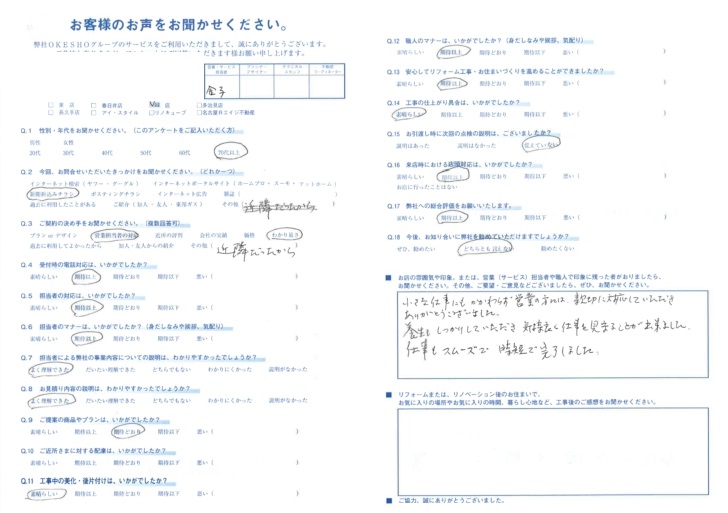 お客様のお声をお聞かせください。
弊社OKESHOグループのサービスをご利用いただきまして、誠にありがとうございます。
営業・サービス 担当者
プランナー デザイナー
テクニカル スタッフ
不動産 コーディネーター
金子
□ 本 店 □ 春日井店 店 □多治見店
□ 長久手店 □ アイ・スタイル □リノキューブ □名古屋Rエイジ不動産
Q.1 性別・年代をお聞かせください。(このアンケートをご記入いただく方)
男性 女性
20代 30代 40代 50代 60代 70代以上
Q.2 今回、お問合せいただいたきっかけをお聞かせください。(どれか一つ)
インターネット検索(ヤフー・グーグル) インターネットポータルサイト(ホームプロ・スーモ・アットホーム)
新聞折込みチラシ ポスティングチラシ インターネット広告 雑誌( )
過去に利用したことがある ご紹介(知人・友人・東邦ガス) その他(近隣だったから)
Q.3 ご契約の決め手をお聞かせください。(複数回答可)
プラン or デザイン 営業担当者の対応 近所の評判 会社の実績 価格 わかり易さ
過去に利用してよかったから 知人・友人からの紹介 その他(近隣だったから)
Q.4 受付時の電話対応は、いかがでしたか?
素晴らしい 期待以上 期待どおり 期待以下 悪い( )
Q.5 担当者の対応は、いかがでしたか?
素晴らしい 期待以上 期待どおり 期待以下 悪い( )
Q.6 担当者のマナーは、いかがでしたか?(身だしなみや挨拶、気配り)
素晴らしい 期待以上 期待どおり 期待以下 悪い( )
Q.7 担当者による弊社の事業内容についての説明は、わかりやすかったでしょうか?
よく理解できた だいたい理解できた どちらでもない わかりにくかった 説明がなかった
Q.8 お見積り内容の説明は、わかりやすかったでしょうか?
よく理解できた だいたい理解できた どちらでもない わかりにくかった 説明がなかった
Q.9 ご提案の商品やプランは、いかがでしたか?
素晴らしい 期待以上 期待どおり 期待以下 悪い( )
Q.10 ご近所さまに対する配慮は、いかがでしたか?
素晴らしい 期待以上 期待どおり 期待以下 悪い( )
Q.11 工事中の美化・後片付けは、いかがでしたか?
素晴らしい 期待以上 期待どおり 期待以下 悪い( )
Q.12 職人のマナーは、いかがでしたか?(身だしなみや挨拶、気配り)
素晴らしい 期待以上 期待どおり 期待以下 悪い( )
Q.13 安心してリフォーム工事・お住まいづくりを進めることができましたか?
素晴らしい 期待以上 期待どおり 期待以下 悪い( )
Q.14 工事の仕上がり具合は、いかがでしたか?
素晴らしい 期待以上 期待どおり 期待以下 悪い( )
Q.15 お引渡し時に次回の点検の説明は、ございましたか?
説明はあった 説明はなかった 覚えていない
Q.16 来店時における店頭対応は、いかがでしたか?
素晴らしい 期待以上 期待どおり 期待以下 悪い( )
お店に行ったことはない
Q.17 弊社への総合評価をお願いいたします。
素晴らしい 期待以上 期待どおり 期待以下 悪い( )
Q.18 今後、お知り合いに弊社を勧めていただけますでしょうか?
ぜひ、勧めたい どちらとも言えない 勧めたくない
■ お店の雰囲気や印象、または、営業(サービス)担当者や職人で印象に残った者がおりましたら、
お聞かせください。その他、ご要望・ご意見などございましたら、ぜひ、お聞かせください。
小さな仕事にもかかわらず営業の方には、親切に対応していただき
ありがとうございました。
養生もしっかりしていただき 気持良く仕事を見守ることが出来ました。
仕事もスムーズで 時短で完了しました。
■ リフォームまたは、リノベーション後のお住まいで、
お気に入りの場所やお気に入りの時間、暮らし心地など、工事後のご感想をお聞かせください。
■ ご協力、誠にありがとうございました。